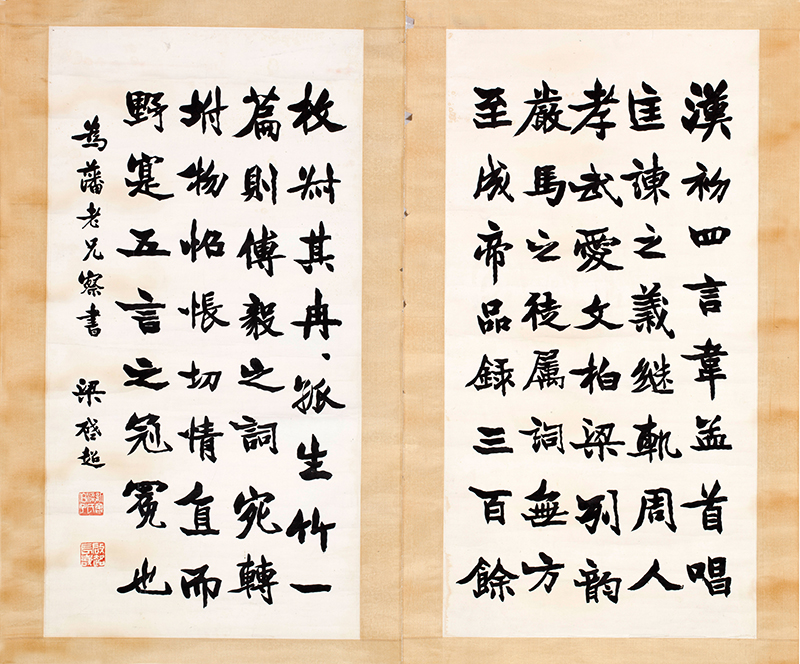 漢初四言韋孟首唱
匡諫之義継軌周人
孝武愛文柏梁列韵
嚴馬之徒属詞無方
至成帝品録三百餘
枚叔其冉〻孤生竹一
篇則傅毅之詞宛轉
坿物怊悵切情直而
野寔五言之冠冕也
為藩老兄察書 梁啓超